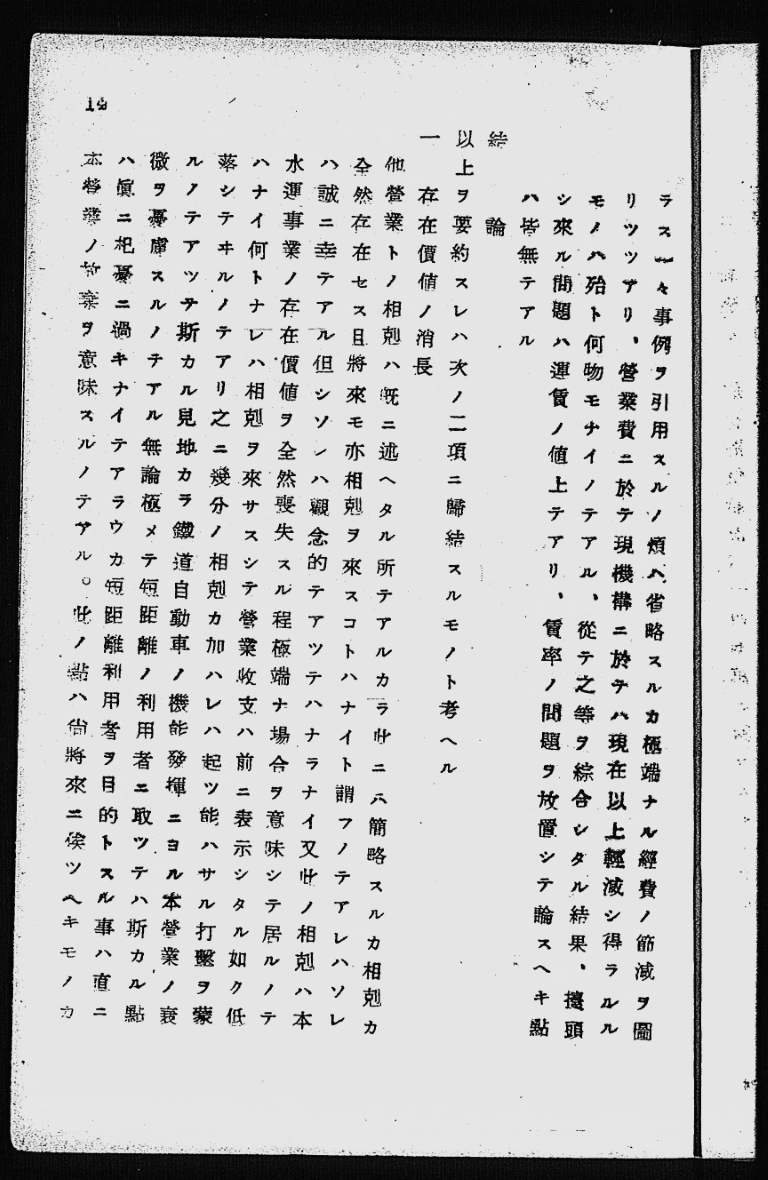 ラス一々事例ヲ引用スルノ煩ハ省略スルカ極端ナル經費ノ節減ヲ圖
リツツアリ、營業費ニ於テ現機構ニ於テハ現在以上輕減シ得ラルル
モノハ殆ト何物モナイノテアル、從テ之等ヲ綜合シタル結果、擡頭
シ來ル問題ハ運賃ノ値上テアリ、賃率ノ問題ヲ放置シテ論スヘキ點
ハ皆無テアル
結論
以上ヲ要約スレハ次ノ二項ニ歸結スルモノト考ヘル
一 存在價値ノ消長
他營業トノ相剋ハ既ニ述ヘタル所テアルカラ此ニハ簡略スルカ相剋カ
全然存在セス且將來モ亦相剋ヲ來スコトハナイト謂フノテアレハソレ
ハ誠ニ幸テアル但シソレハ觀念的テアツテハナラナイ又此ノ相剋ハ本
水運事業ノ存在價値ヲ全然喪失スル程極端ナ場合ヲ意味シテ居ルノテ
ハナイ何トナレハ相剋ヲ來サスシテ營業收支ハ前ニ表示シタル如ク低
落シテヰルノテアリ之ニ幾分ノ相剋カ加ハレハ起ツ能ハサル打擊ヲ蒙
ルノテアツテ斯カル見地カラ鐵道自動車ノ機能發揮ニヨル本營業ノ衰
微ヲ憂慮スルノテアル無論極メテ短距離ノ利用者ニ取ツテハ斯カル點
ハ眞ニ杞憂ニ過キナイテアラウカ短距離利用者ヲ目的トスル事ハ直ニ
本營業ノ放棄ヲ意味スルノテアル。此ノ點ハ尙將來ニ俟ツヘキモノカ
14